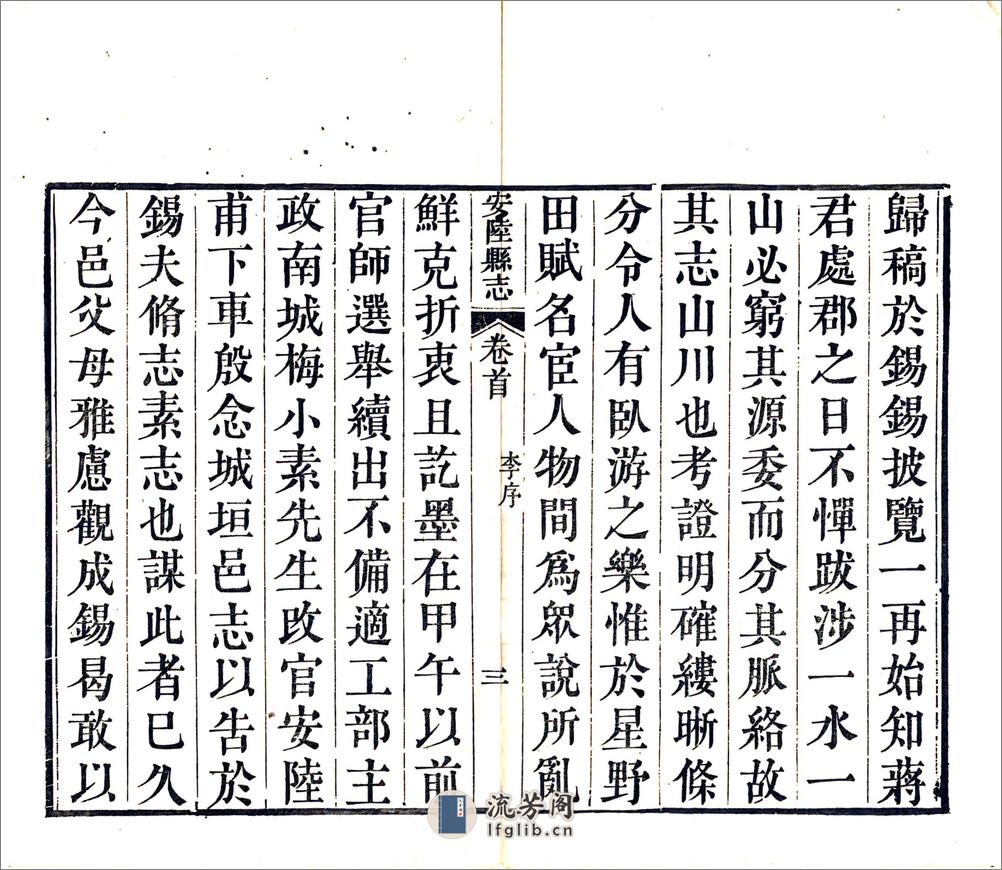 歸稿於錫錫披覽一再始知蔣
君處郡之日不憚跋涉一水一
山必窮其源委而分其脈絡故
其志山川也考證明確縷晰條
分令人有臥游之樂惟於星野
田賦名宦人物間爲眾說所亂
安陸縣志
卷首
李序
三
鮮克折衷且訖墨在甲午以前
官師選舉續出不備適工部主
政南城梅小素先生改官安陸
甫下車殷念城垣邑志以告於
錫夫脩志素志也謀此者已久
今邑父母雅慮觀成錫曷敢以
流芳阁
lfglib.cn